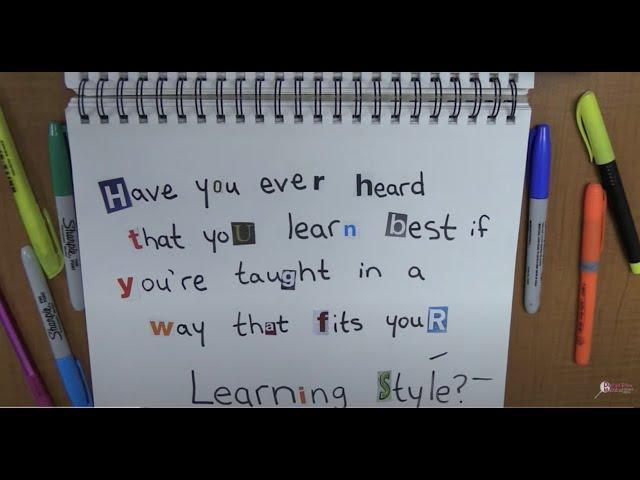 Have you ever heard
that yoU learn best if
you're taught in a
way that fits youR
Learning Style?
Sharpie
Sharpie